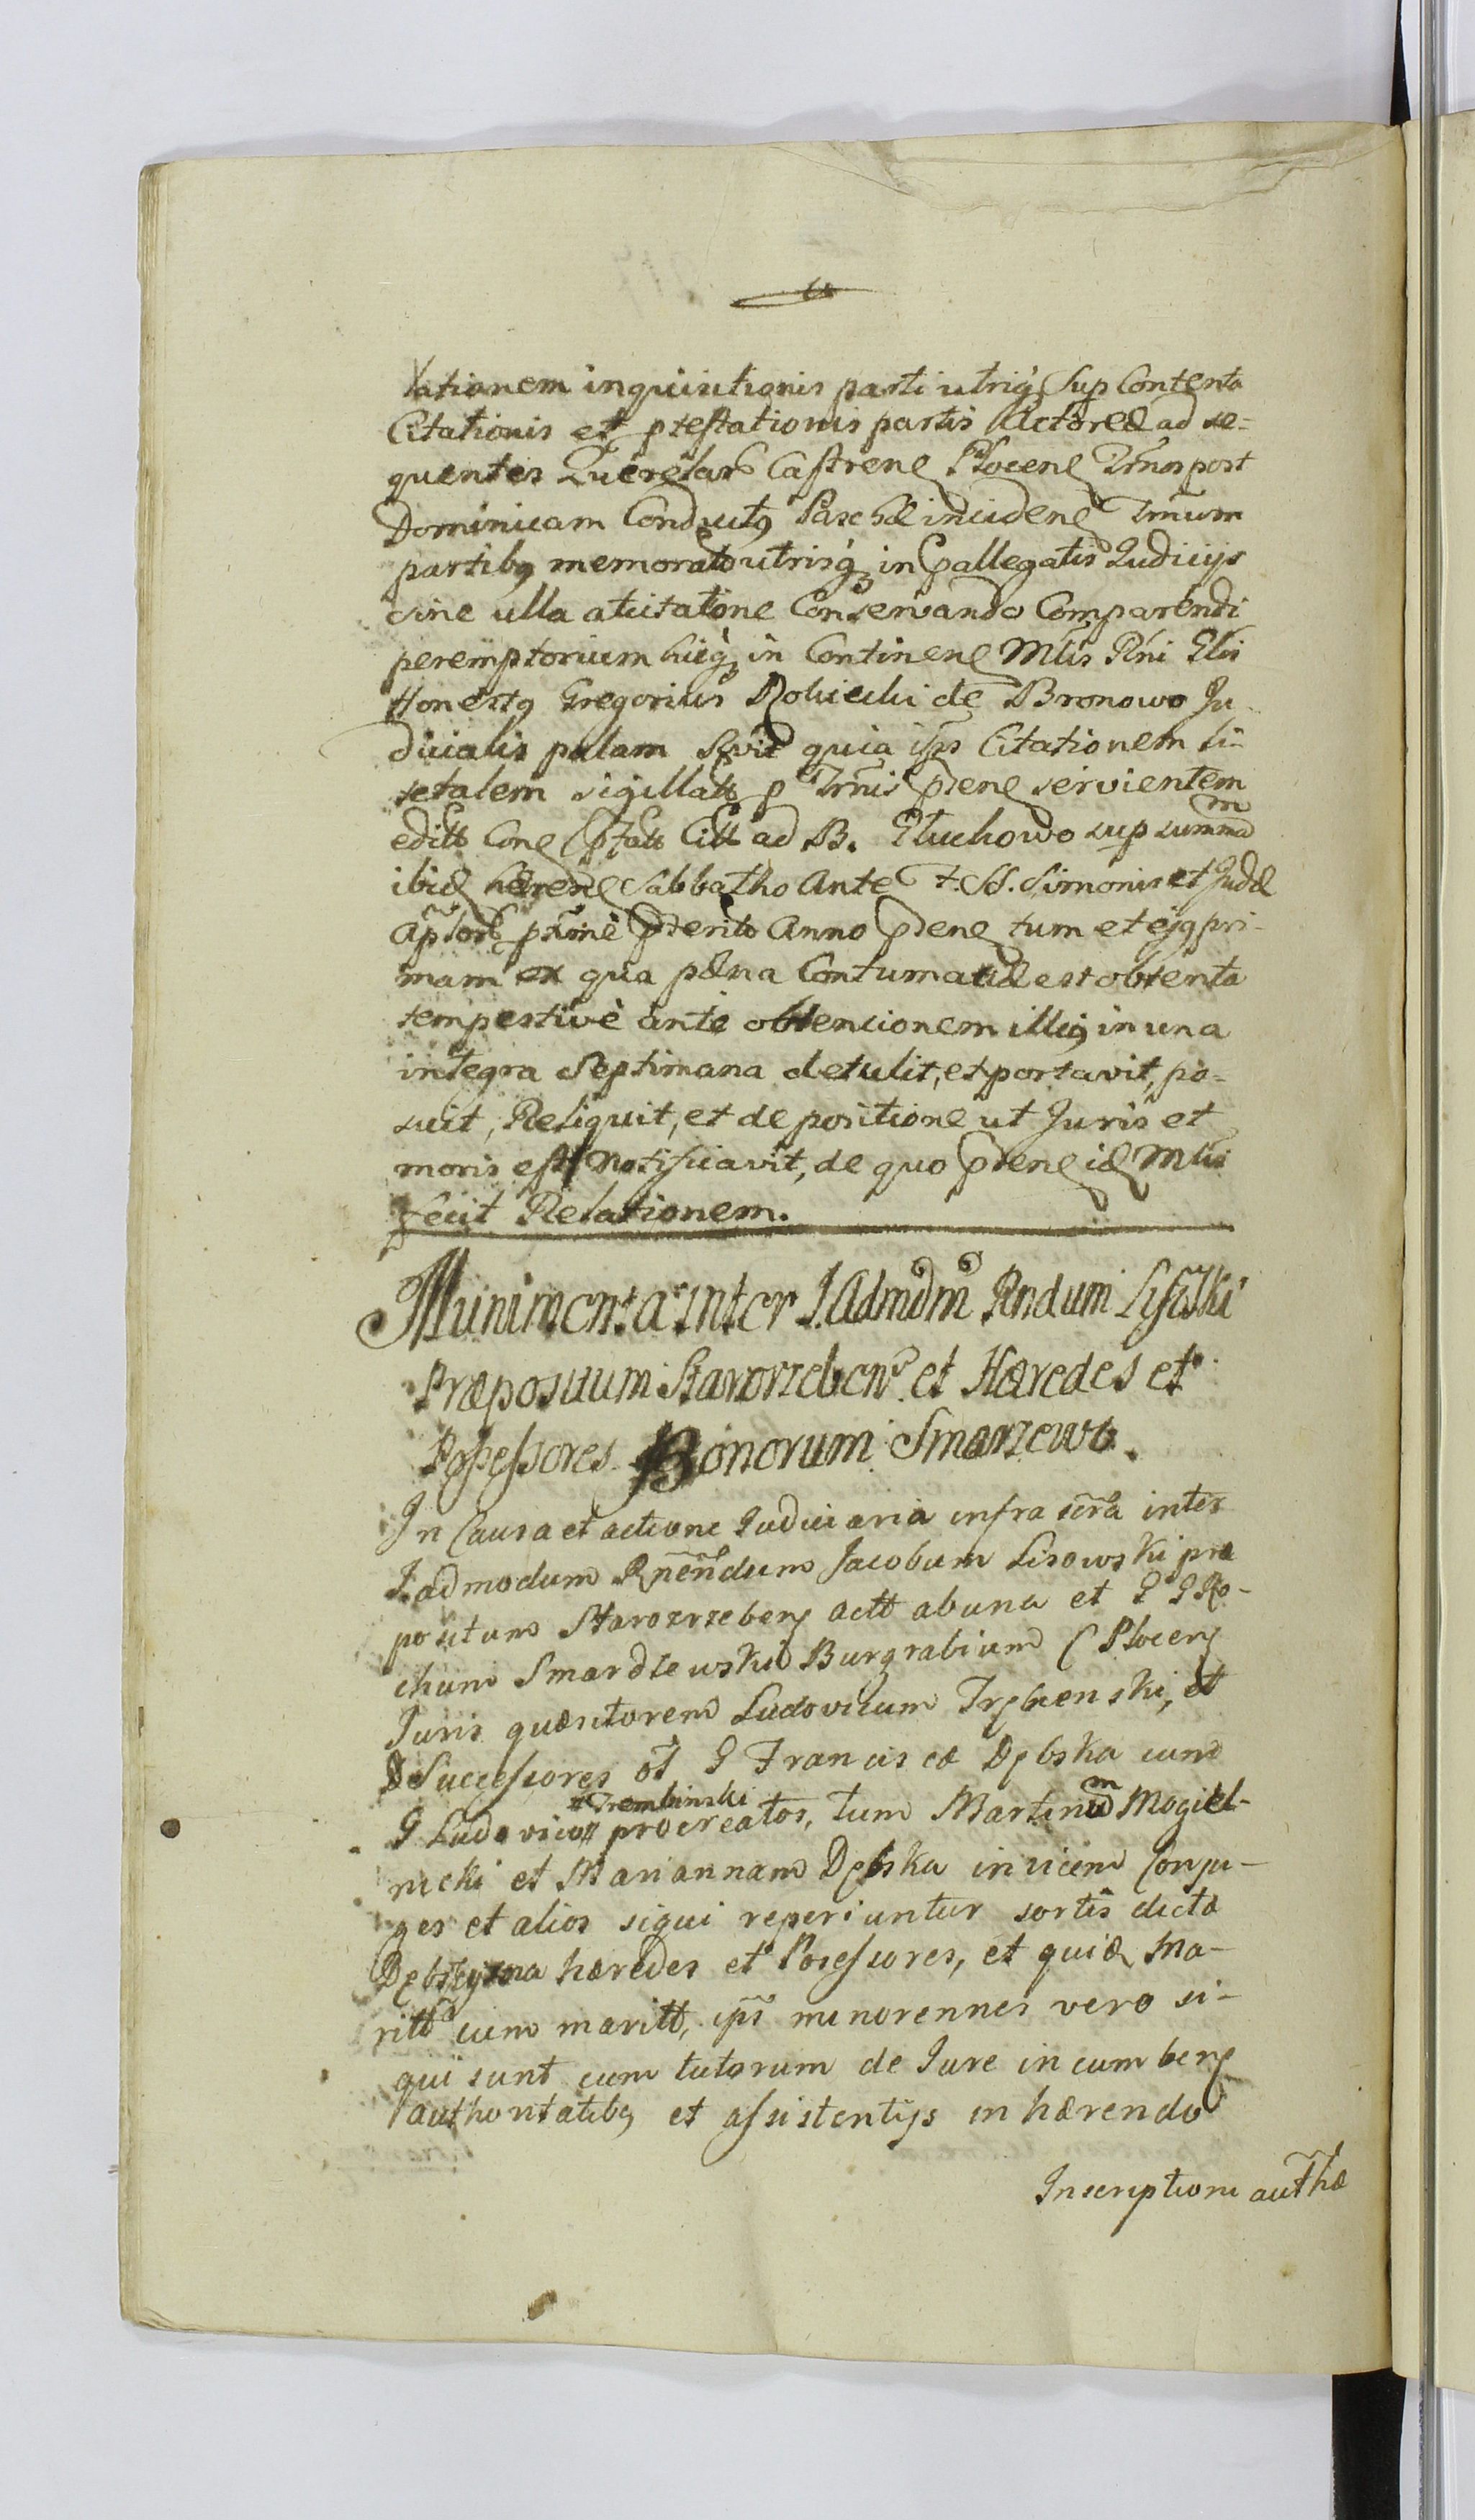 Vationem inquisitionis parti utriq; Sup Contenta
Citationis et ptestationis partis Actoreæ ad se-
quentes Querelar Castren Plocen Tmos post
Dominicam Conductq Paschæ inciden Tmum
partibq memorato utrisq; in pallegatis Judicijs
sine ulla atcitatione Conservando Comparendi
peremptorium huiq; in Continen Mtis Rni Glis
Honestq Gregorius Robiecki de Bronowo Ju-
dicialis palam quia ips Citationem li-
tetalem sigillatt p Tmis pten servientem
editt Con Citt ad B. Gluchowo sup summam
ibid hæren Sabbatho Ante F. SS. Simonis et Judæ
Aplor pxime pterito Anno pten tum et ejq pri-
mam ex qua pæna Contumaciæ est obtenta
tempestivè ante obtencionem illiq in una
integra Septimana detulit, et portavit, po-
suit, Reliquit, et de positione ut Juris et
moris est Notificavit, de quo pten id Mtis
fecit Relationem.
Munimenta inter J. Admdm Rndum Lisowski
Præpositum Starorzeben et Hæredes et
Possessores Bonorum Smarzewo.
In Causa et actione Judiciaria infra scra inter
J. admodum Rnendum Jacobum Lisowski præ
positum Starozrzeben actt ab una et G G Ro-
chum Smardzewski Burgrabium C Plocen
Juris quæsitorem Ludovicum Trębienski, et
Successores ol G Francisca Dębska cum
G Ludovico Trembinski procreatos, tum Martinum Mogiel-
nicki et Mariannam Dębska invicem Conju-
ges et alios siqui reperiuntur sortis dicta
hæredes et Posessores, et quid Ma-
ritt cum maritt, ips minorennes vero si-
qui sunt cum tutorum de Jure incumben
authoritatibq et assistentijs inhærendo
Inscriptioni autthæ